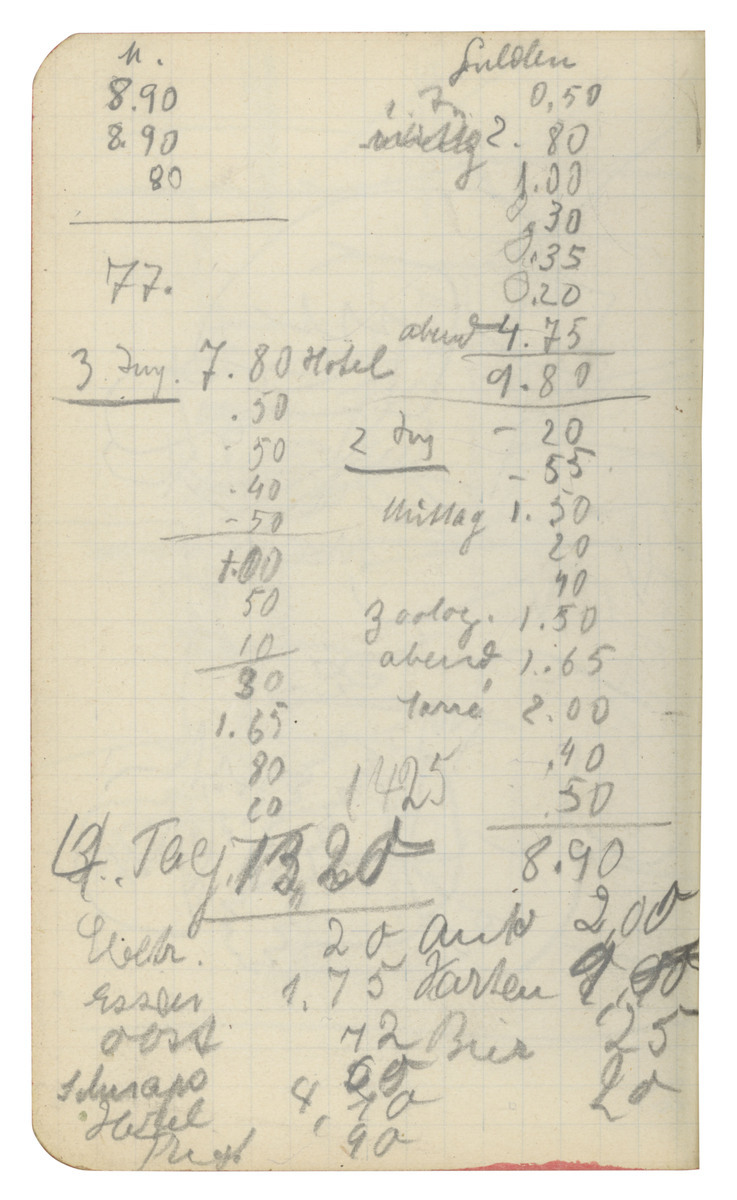 M.
8.90
8.90
80
77.
3 Tag. 7.80 Hotel
.50
50
.40
-50
1.00
50
10
80
1.65
80
20
1425
Gulden
1. Tag 0,50
2.80
1.00
0.30
0.35
0.20
abend 4.75
9.80
2 Tag - 20
- 55
Mittag 1.50
20
40
Zoolog. 1.50
abend 1.65
2.00
.40
.50
8.90
4. Tag. 13,20
Elektr. 20 Auto 2,00
Essen 1.75 Karten
Obst 12 Bier 25
Schnaps 65 20
Hotel 4,70
90